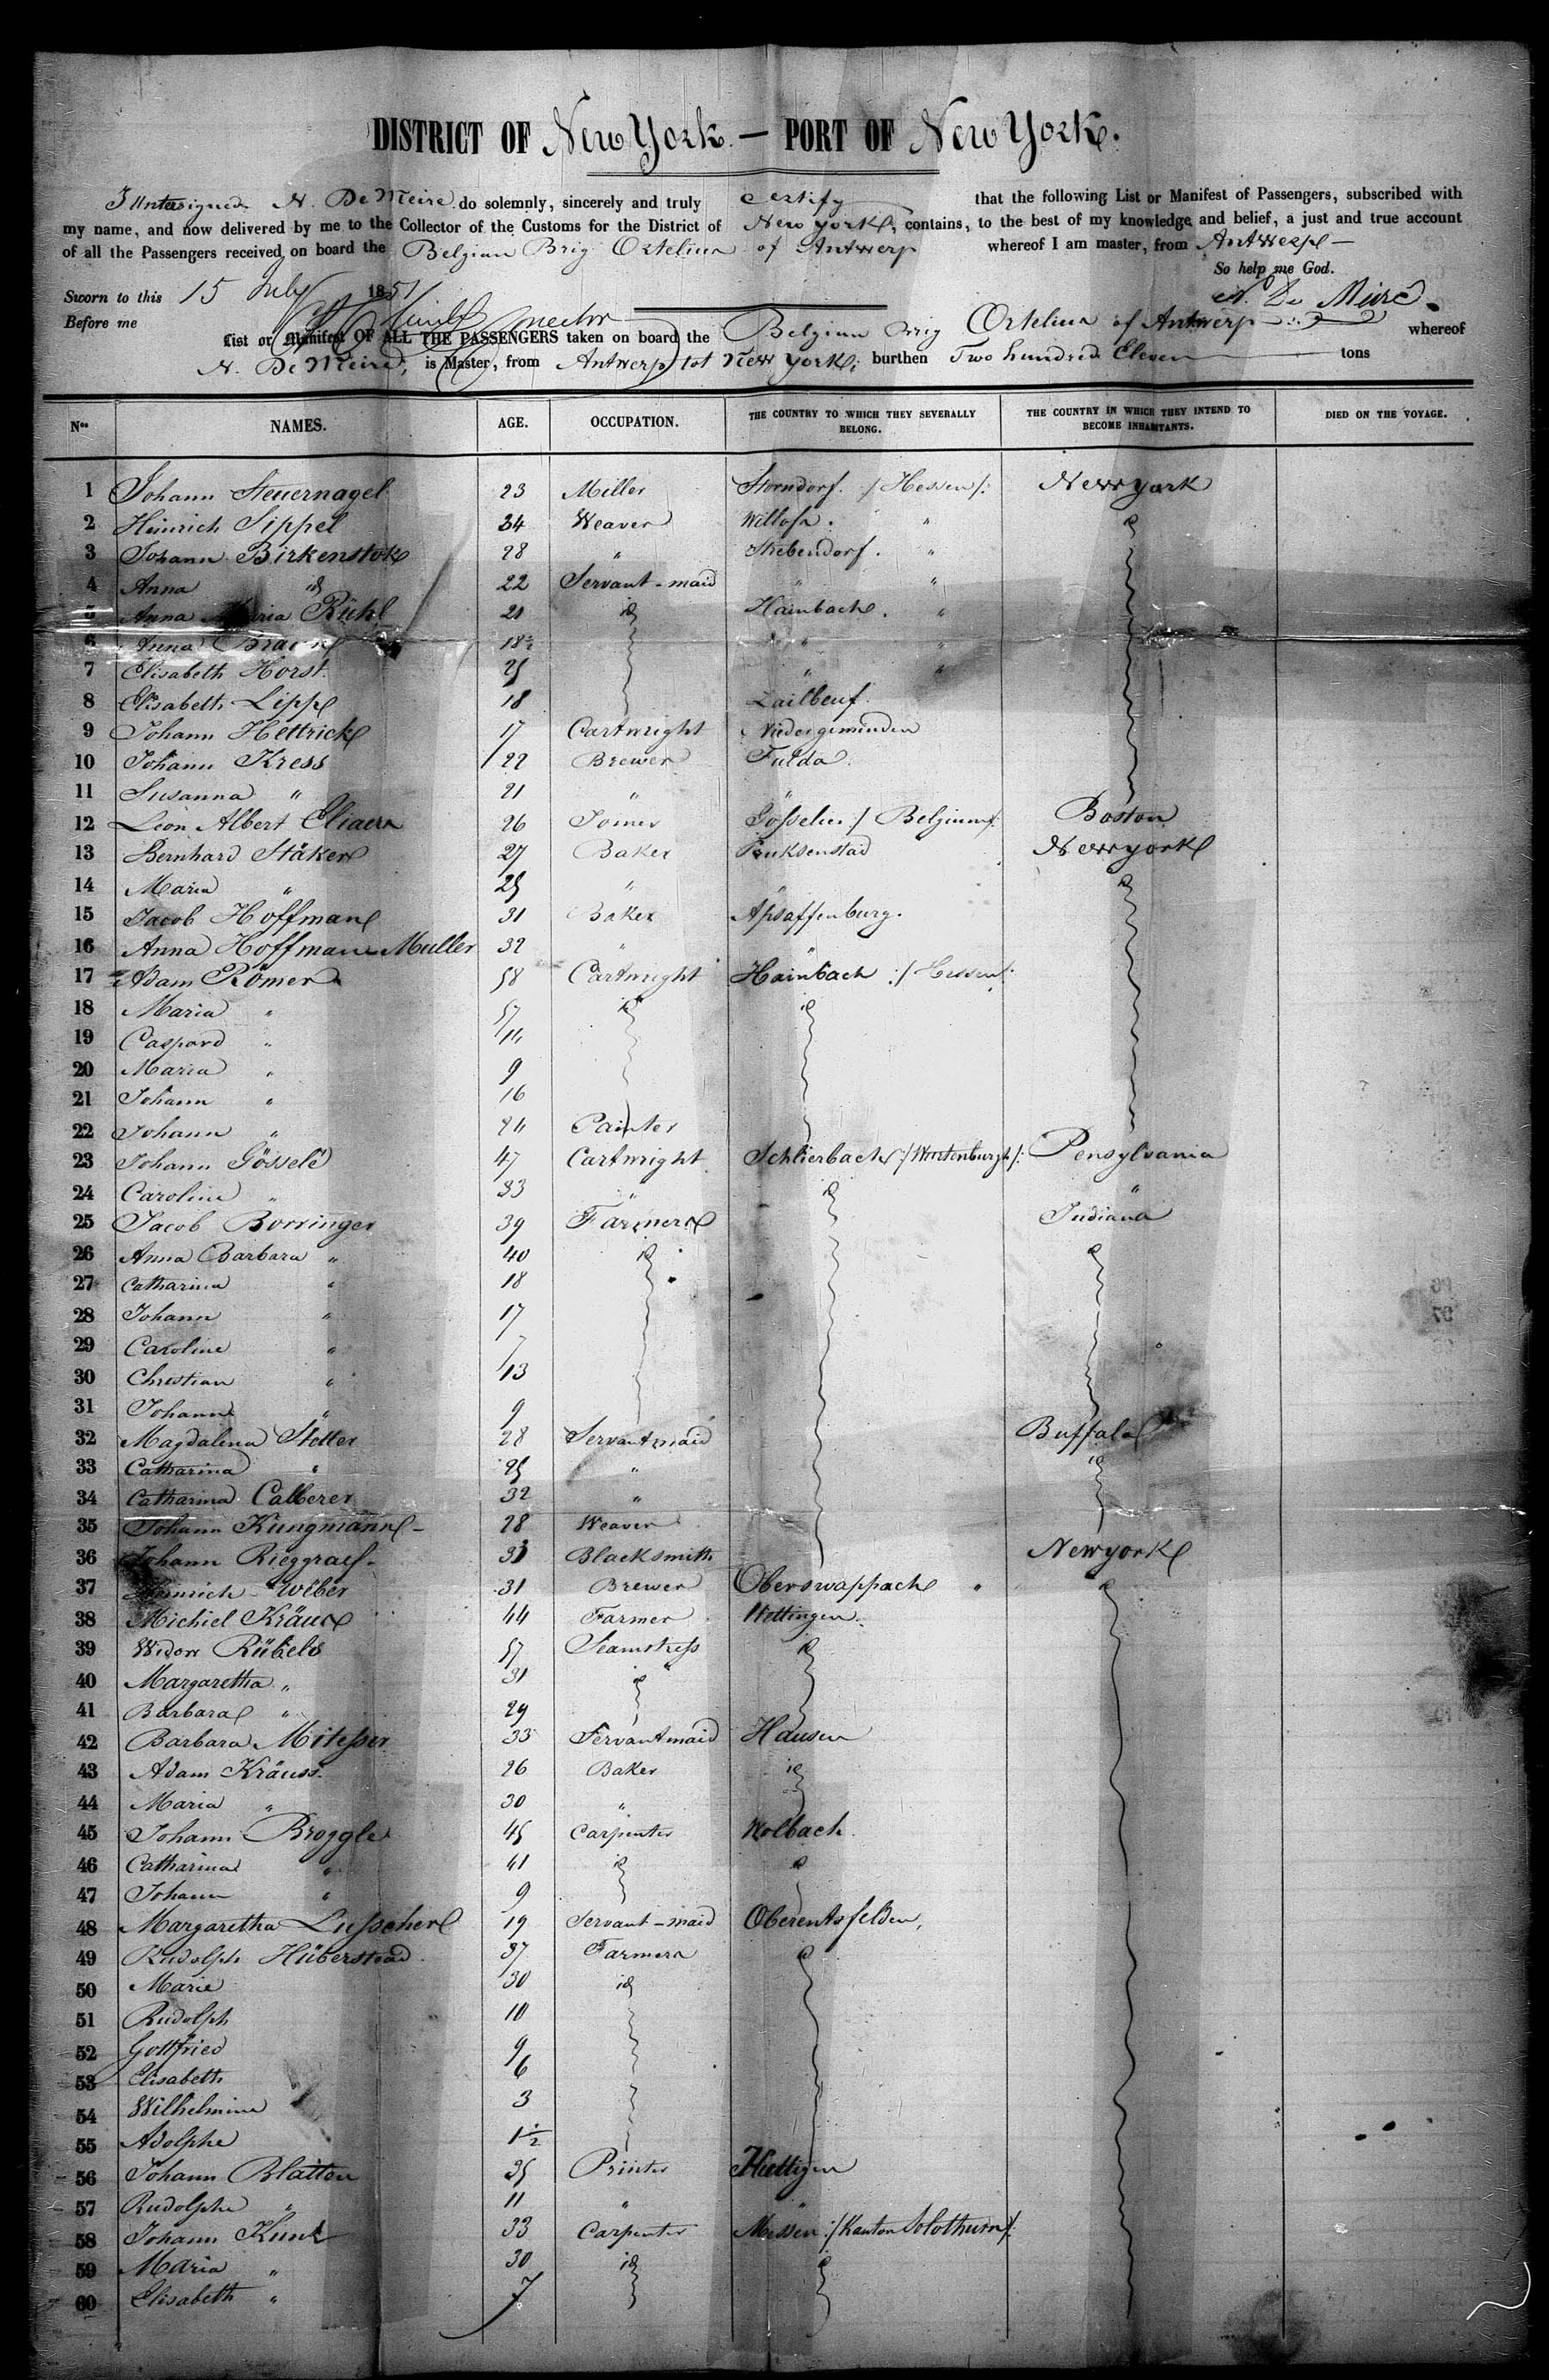 DISTRICT OF New York. — PORT OF New York.
I Undersigned N. De Meire do solemnly, sincerely and truly certify that the following List or Manifest of Passengers, subscribed with
my name, and now delivered by me to the Collector of the Customs for the District of New york, contains, to the best of my knowledge and belief, a just and true account
of all the Passengers received on board the Belgian Brig Ortelius of Antwerp whereof I am master, from Antwerp —
So help me God.
Sworn to this 15 July 1851 N. De Meire
Before me
List or Manifest OF ALL THE PASSENGERS taken on board the Belgian brig Ortelius of Antwerp whereof
N. De Meire, is Master, from Antwerp tot New york; burthen Two hundred Eleven tons
Nos NAMES. AGE. OCCUPATION. THE COUNTRY TO WHICH THEY SEVERALLY BELONG. THE COUNTRY IN WHICH THEY INTEND TO BECOME INHABITANTS. DIED ON THE VOYAGE.
1 Johann Steuernagel 23 Miller Storndorf. /Hessen/: New york
2 Heinrich Sippel 34 Weaver Willofs. " id
3 Johann Birkenstok 28 " Strebendorf. "
4 Anna id 22 Servant-maid " "
5 Anna Maria Rühl 21 id Hainbach. "
6 Anna Braun 18½ " "
7 Elisabeth Horst. 25 " "
8 Elisabeth Lipp 18 Zailbeuf.
9 Johann Hettrick 17 Cartwright Niedergemünden
10 Johann Kress 22 Brewer Fulda.
11 Susanna " 21 " "
12 Léon Albert Eliaers 26 Joiner Gosselies :/ Belgium/: Boston
13 Bernhard Stäker 27 Baker Pruksenstad New york
14 Maria " 25 " " id
15 Jacob Hoffman 31 Baker Assaffenburg.
16 Anna Hoffman Muller 32 " "
17 Adam Römer 58 Cartwright Hainbach :/ Hessen/:
18 Maria " 57 id id
19 Caspard " 11
20 Maria " 9
21 Johann " 16
22 Johann " 24 Painter
23 Johann Gösselé 47 Cartwright Schlierbach :/Wurtenburgh/: Pensylvania
24 Caroline " 33 " id "
25 Jacob Borringer 39 Farmers Indiana
26 Anna Barbara " 40 id id
27 Catharina " 18
28 Johann " 17
29 Caroline "
30 Christian " 13
31 Johann " 9
32 Magdalena Stoller 28 Servant maid Buffalo
33 Catharina " 25 " id
34 Catharina Calberer 32 "
35 Johann Kungmann 28 Weaver
36 Johann Rieggraef 33 Blacksmith New york
37 Heinrich Wéber 31 Brewer Oberswappach " id
38 Michiel Kräus 44 Farmer Wettingen.
39 Widow Rübels 57 Seamstress id
40 Margaretha " 31 id
41 Barbara " 29
42 Barbara Mitesser 33 Servant maid Hausen
43 Adam Kräuss. 26 Baker id
44 Maria " 30 "
45 Johann Broggle 45 Carpenter Wolbach.
46 Catharina " 41 id id
47 Johann " 9
48 Margaretha Lusscher 19 Servant-maid Oberentsfelden,
49 Rudolph Hüberstead 37 Farmers id
50 Marie 30 id
51 Rudolph 10
52 Gottfried 9
53 Elisabeth 6
54 Wilhelmine 3
55 Adolphe 1½
56 Johann Blatten 35 Printer Huttigen
57 Rudolphe " 11 " "
58 Johann Kunz 33 Carpenter Messen :/Kanton Solothurn/:
59 Maria " 30 id id
60 Elisabeth " 7